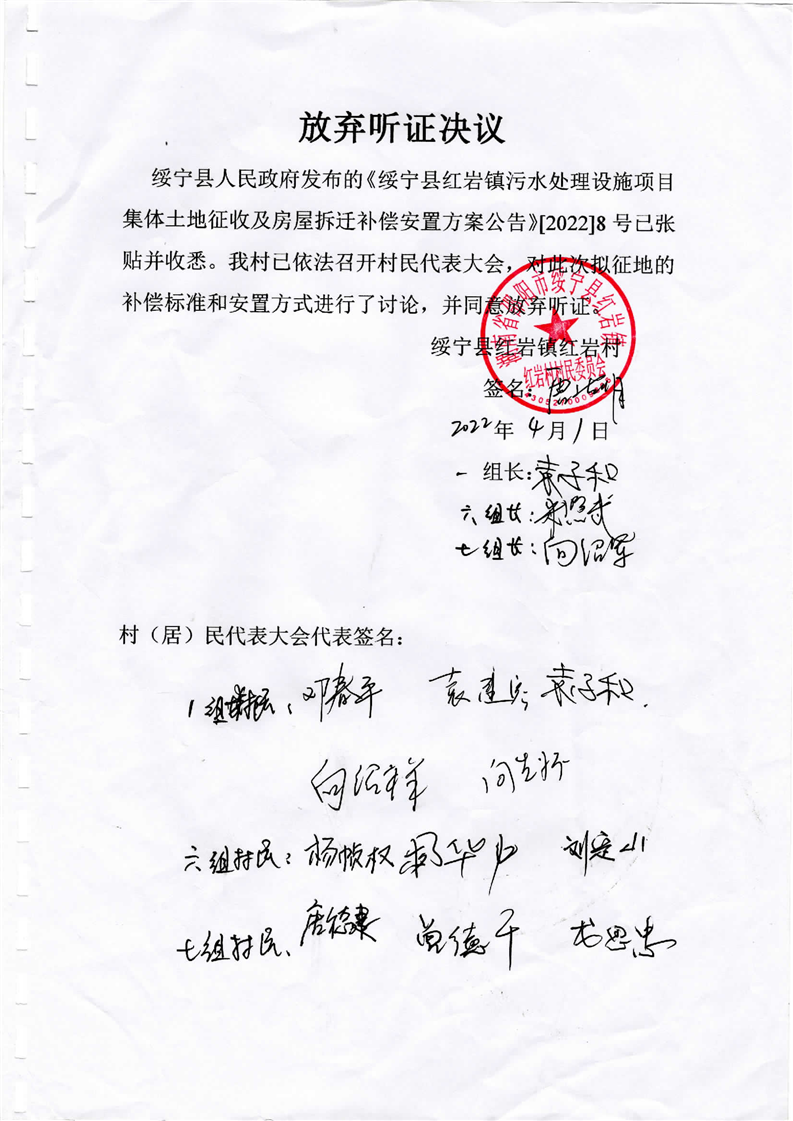 放弃听证决议
绥宁县人民政府发布的《绥宁县红岩镇污水处理设施项目
集体土地征收及房屋拆迁补偿安置方案公告》[2022]8号已张
贴并收悉。我村已依法召开村民代表大会，对此次拟征地的
补偿标准和安置方式进行了讨论，并同意放弃听证。
湖南省邵阳市绥宁县红岩镇
绥宁县红岩镇红岩村
红岩村村民委员会
签名：
2022年4月1日
一组长：袁子和
六组长：
七组长：向绍军
村（居）民代表大会代表签名：
1组村民：邓春平 袁建宏 袁子和
向绍祥
六组村民：杨帧权 刘定山
七组村民、唐德 曾德干 龙思忠